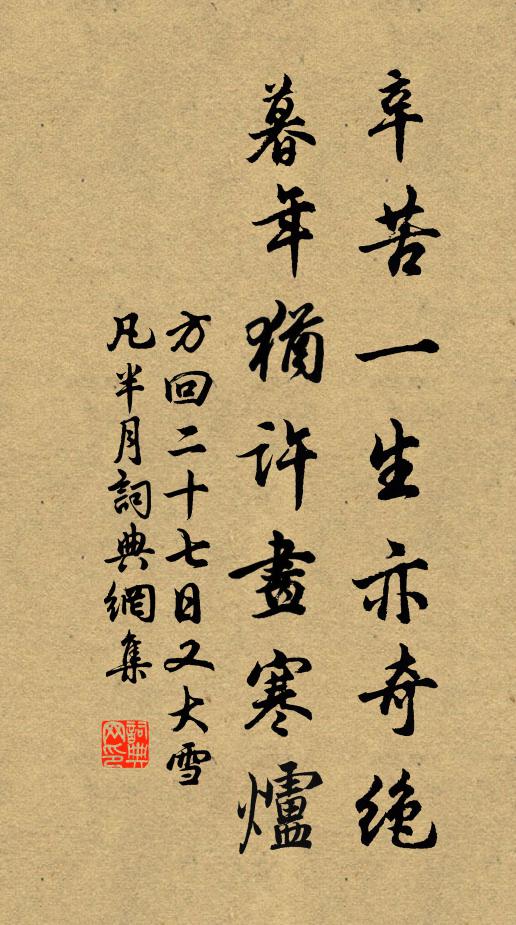 辛苦一生亦奇絶
暮年猶許畫寒爐
方回二十七日又大雪
凡半月詞典網集
詞典
网印